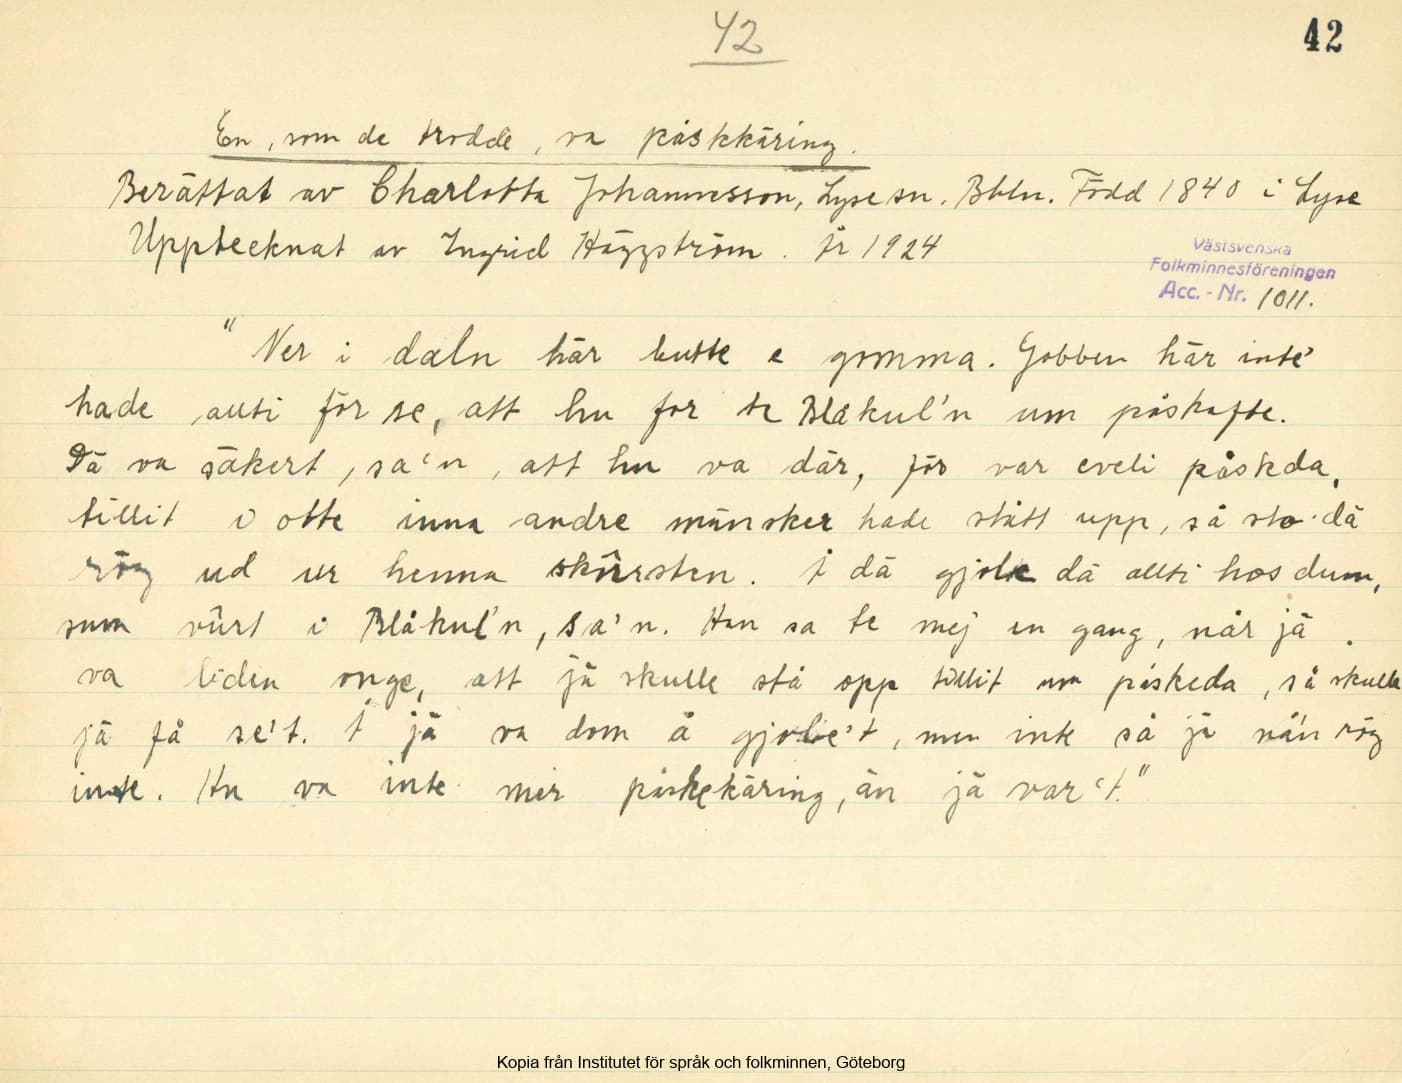 42
42
En, som de trodde, va påskkäring.
Berättat av Charlotta Johannesson, Lyse sn. Bhln. Född 1840 i Lyse
Upptecknat av Ingrid Häggström. År 1924
Västsvenska
Folkminnesföreningen
Acc.-Nr. 1011.
"Ner i daln här butte e gomma. Gobben här inte'
hade allti för se, att hu for te Blåkul'n um påskafte.
Dä va säkert, sa'n, att hu va där, för var eveli påskda,
tillit i otte inna andre mänsker hade stått upp, så sto dä
rög ud ur henna skûrsten. Å dä gjole dä allti hos dum,
sum vûrt i Blåkul'n, sa'n. Han sa te mej en gang, når jä
va liden onge, att jä skulle stå opp tillit um påskeda, så skulle
jä få se't. Å jä va dom å gjole't, men inte så jä nå'n rög
inte. Hu va inte mer påskekäring, än jä var't."
Kopia från Institutet för språk och folkminnen, Göteborg